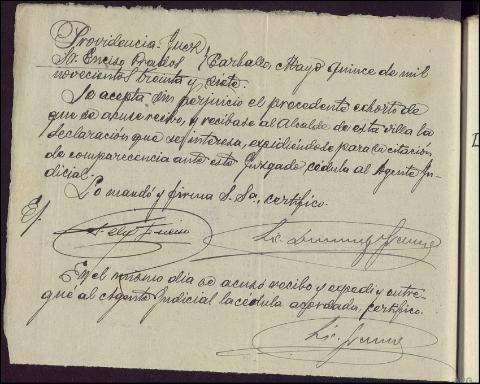 Providencia. Juez
Sr. Enciso Prados } Carballo, Mayo quince de mil
novecientos treinta y siete.
Se acepta sin perjuicio el precedente exhorto de
que se acuse recibo, y recíbase al Alcalde de esta villa la
declaración que se interesa, expidiéndose para su citación
de comparecencia ante este Juzgado cédula al Agente Ju-
dicial.
Lo mandó y firma S. Sa., certifico.
E/.
Lic.
En el mismo dia se acusó recibo y expedí y entre-
gué al Agente Judicial la cédula acordada, certifico.
Lic.